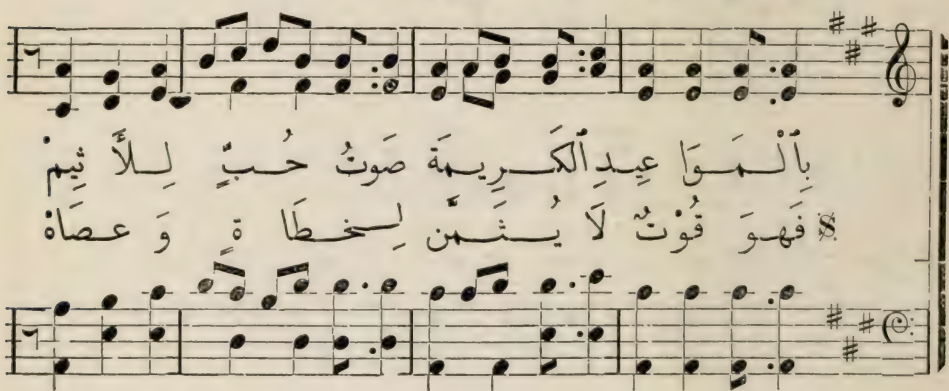 بِٱلْـمَـوَا عِيدِ ٱلْكَـرِيـمَة صَوتُ حُـبٍّ لِـلأَ ثِيمْ
فَهـوَ قُوْتٌ لَا يُـثَـمَّن لِـخـطَا ةٍ وَ عـصَاهْ